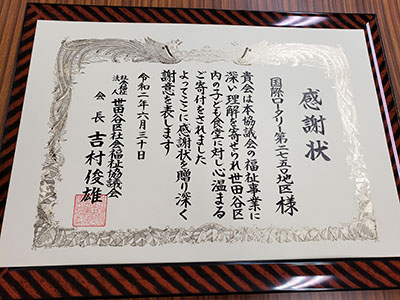 感謝状
国際ロータリー第二七五〇地区 様
貴会は本協議会の福祉事業に
深い理解を寄せられ世田谷区
内の子ども食堂に対し心温まる
ご寄付をされました
よってここに感謝状を贈り深く
謝意を表します
令和二年六月三十日
社会福祉法人 世田谷区社会福祉協議会
会長 吉村俊雄